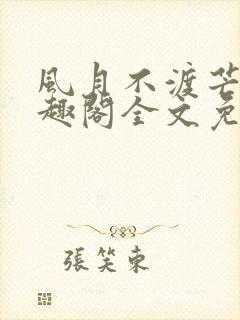 風月不渡芒
趣閣全文免
張笑東